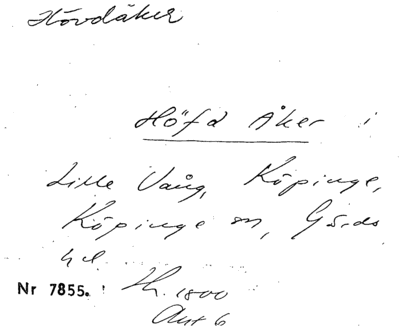 Hövdåker
Höfd Åker i
Lille Vång, Köpinge,
Köpinge sn, Gärds
hd
Nr 7855. Th. 1800
Akt 6